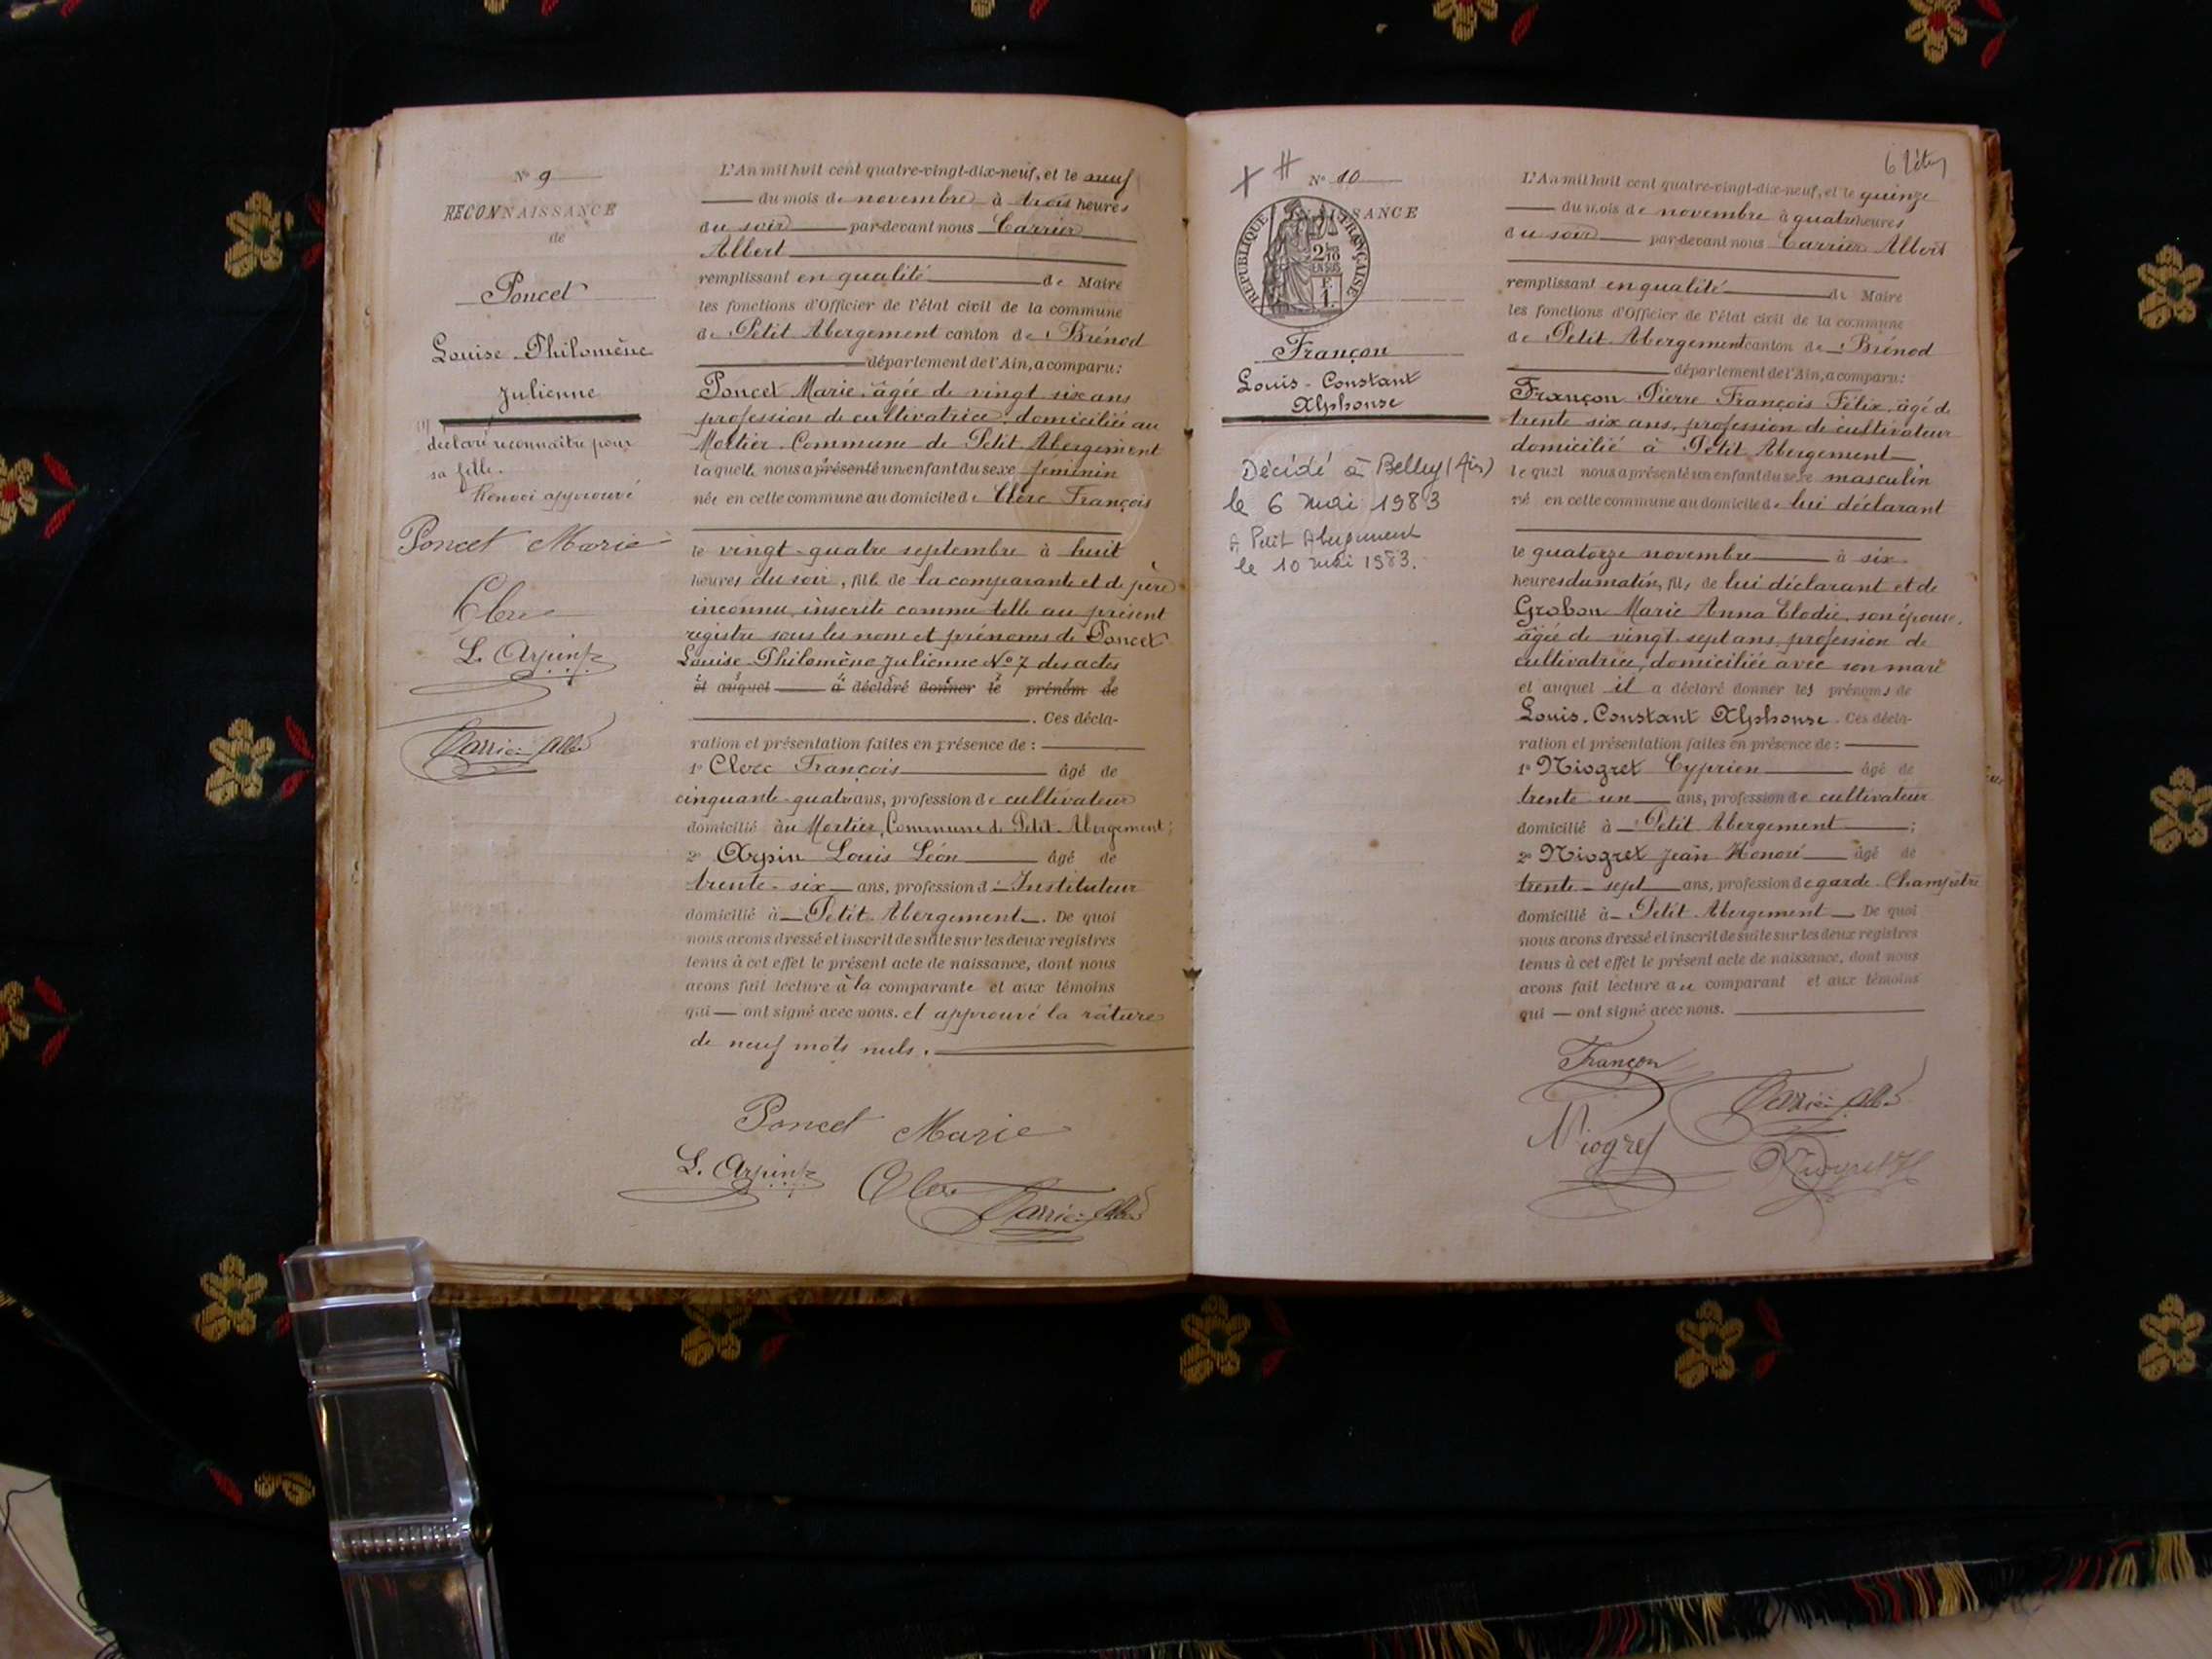 N° 9
RECONNAISSANCE
de
Poncet
Louise-Philomène
Julienne
(1)
déclaré reconnaître pour
sa fille.
Renvoi approuvé
Poncet Marie
Clerc
L. Arpin
Carrier Albert
L'An mil huit cent quatre-vingt-dix-neuf, et le neuf
du mois de novembre à trois heures
du soir par-devant nous Carrier
Albert
remplissant en qualité de Maire
les fonctions d'Officier de l'état civil de la commune
de Petit Abergement canton de Brénod
département de l'Ain, a comparu:
Poncet Marie, âgée de vingt six ans
profession de cultivatrice, domiciliée au
Mortier, Commune de Petit Abergement
laquelle nous a présenté un enfant du sexe féminin
née en cette commune au domicile de Clerc François
le vingt-quatre septembre à huit
heures du soir, fille de la comparante et de père
inconnu, inscrite comme telle au présent
registre sous les nom et prénoms de Poncet
Louise Philomène Julienne N° 7 des actes
et auquel a déclaré donner le prénom de
. Ces décla-
ration et présentation faites en présence de :
1° Clerc François âgé de
cinquante-quatre ans, profession de cultivateur
domicilié au Mortier, Commune de Petit-Abergement;
2° Arpin Louis Léon âgé de
trente-six ans, profession d'Instituteur
domicilié à Petit-Abergement. De quoi
nous avons dressé et inscrit de suite sur les deux registres
tenus à cet effet le présent acte de naissance, dont nous
avons fait lecture à la comparante et aux témoins
qui ont signé avec nous. et approuvé la râture
de neuf mots nuls.
Poncet Marie
L. Arpin
Clerc
Carrier Albert
N° 10
NAISSANCE
REPUBLIQUE FRANÇAISE
2/10
EN SUS
F.
1.
Françon
Louis-Constant
Alphonse
Décidé à Belley (Ain)
le 6 mai 1983
A Petit Abergement
le 10 mai 1983.
L'An mil huit cent quatre-vingt-dix-neuf, et le quinze
du mois de novembre à quatre heures
du soir par-devant nous Carrier Albert
remplissant en qualité de Maire
les fonctions d'Officier de l'état civil de la commune
de Petit Abergement canton de Brénod
département de l'Ain, a comparu:
Françon Pierre François Félix, âgé de
trente six ans, profession de cultivateur
domicilié à Petit Abergement
lequel nous a présenté un enfant du sexe masculin
né en cette commune au domicile de lui déclarant
le quatorze novembre à six
heures du matin, fils de lui déclarant et de
Grobon Marie Anna Elodie, son épouse,
âgée de vingt-sept ans, profession de
cultivatrice, domiciliée avec son mari
et auquel il a déclaré donner les prénoms de
Louis-Constant Alphonse. Ces décla-
ration et présentation faites en présence de :
1° Niogret Cyprien âgé de
trente un ans, profession de cultivateur
domicilié à Petit Abergement ;
2° Niogret Jean Honoré âgé de
trente-sept ans, profession de garde-Champêtre
domicilié à Petit-Abergement De quoi
nous avons dressé et inscrit de suite sur les deux registres
tenus à cet effet le présent acte de naissance, dont nous
avons fait lecture au comparant et aux témoins
qui ont signé avec nous.
Françon
Carrier Albert
Niogret
Niogret